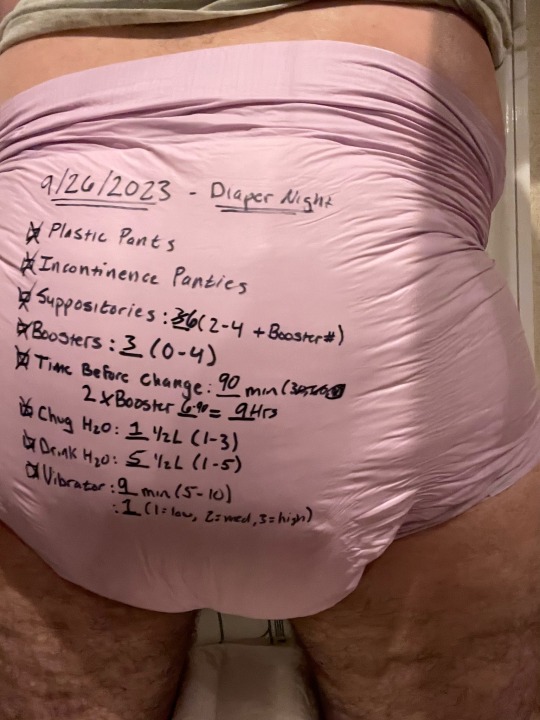 9/26/2023 - Diaper Night
Plastic Pants
Incontinence Panties
Suppositories: 6 (2-4 + Booster#)
Boosters: 3 (0-4)
Time Before Change: 90 min
2 x Booster = 9 Hrs
Chug H2O: 1 1/2L (1-3)
Drink H2O: 5 1/2L (1-5)
Vibrator: 9 min (5-10)
: 1 (1=low, 2=med, 3=high)